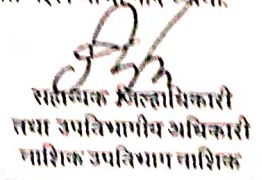 सहाय्यक जिल्हाधिकारी
तथा उपविभागीय अधिकारी
नाशिक उपविभाग नाशिक